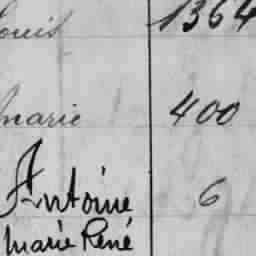 ouis 1364
marie 400
Antoine 6
marie René